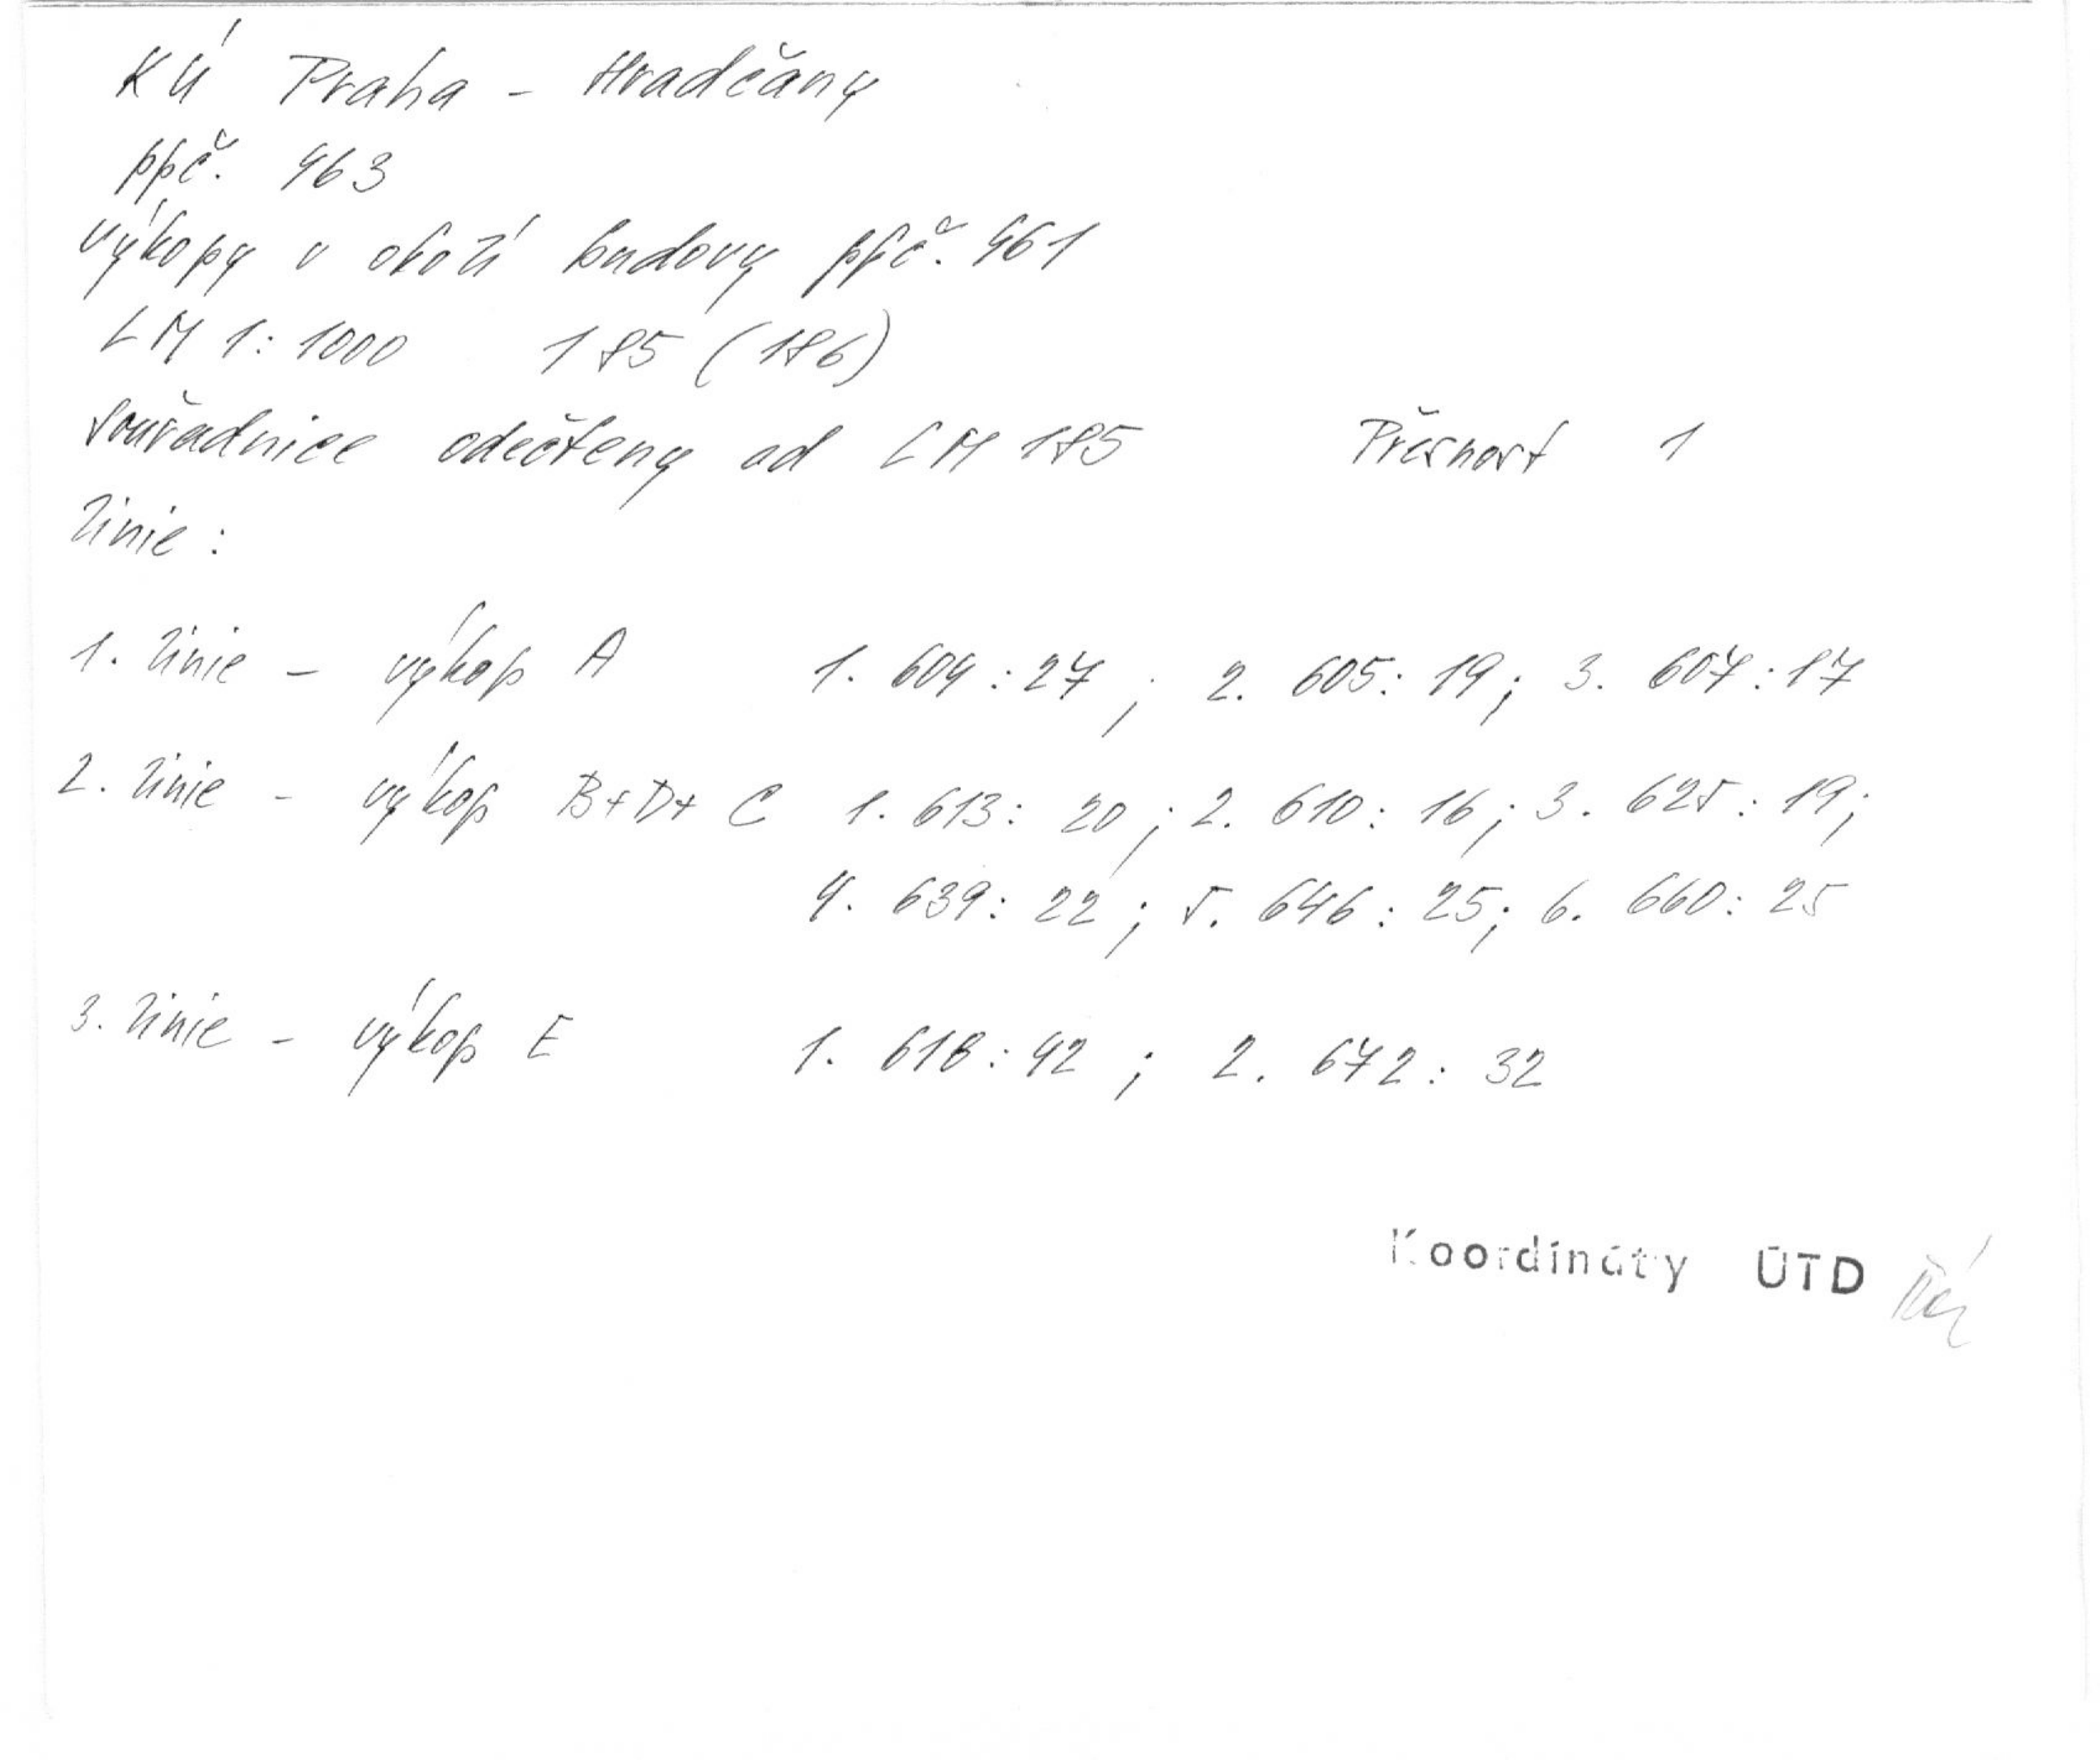 KÚ Praha - Hradčany
ppč. 463
výkopy v okolí budovy ppč. 461
LM 1:1000 185 (186)
souřadnice odečteny od LM 185 Přesnost 1
linie :
1. linie - výkop A 1. 604 : 27 ; 2. 605 : 19 ; 3. 607 : 17
2. linie - výkop B+D+C 1. 613 : 20 ; 2. 610 : 16 ; 3. 625 : 19 ;
4. 639 : 22 ; 5. 646 : 25 ; 6. 660 : 25
3. linie - výkop E 1. 618 : 42 ; 2. 672 : 32
Koordináty ÚTD